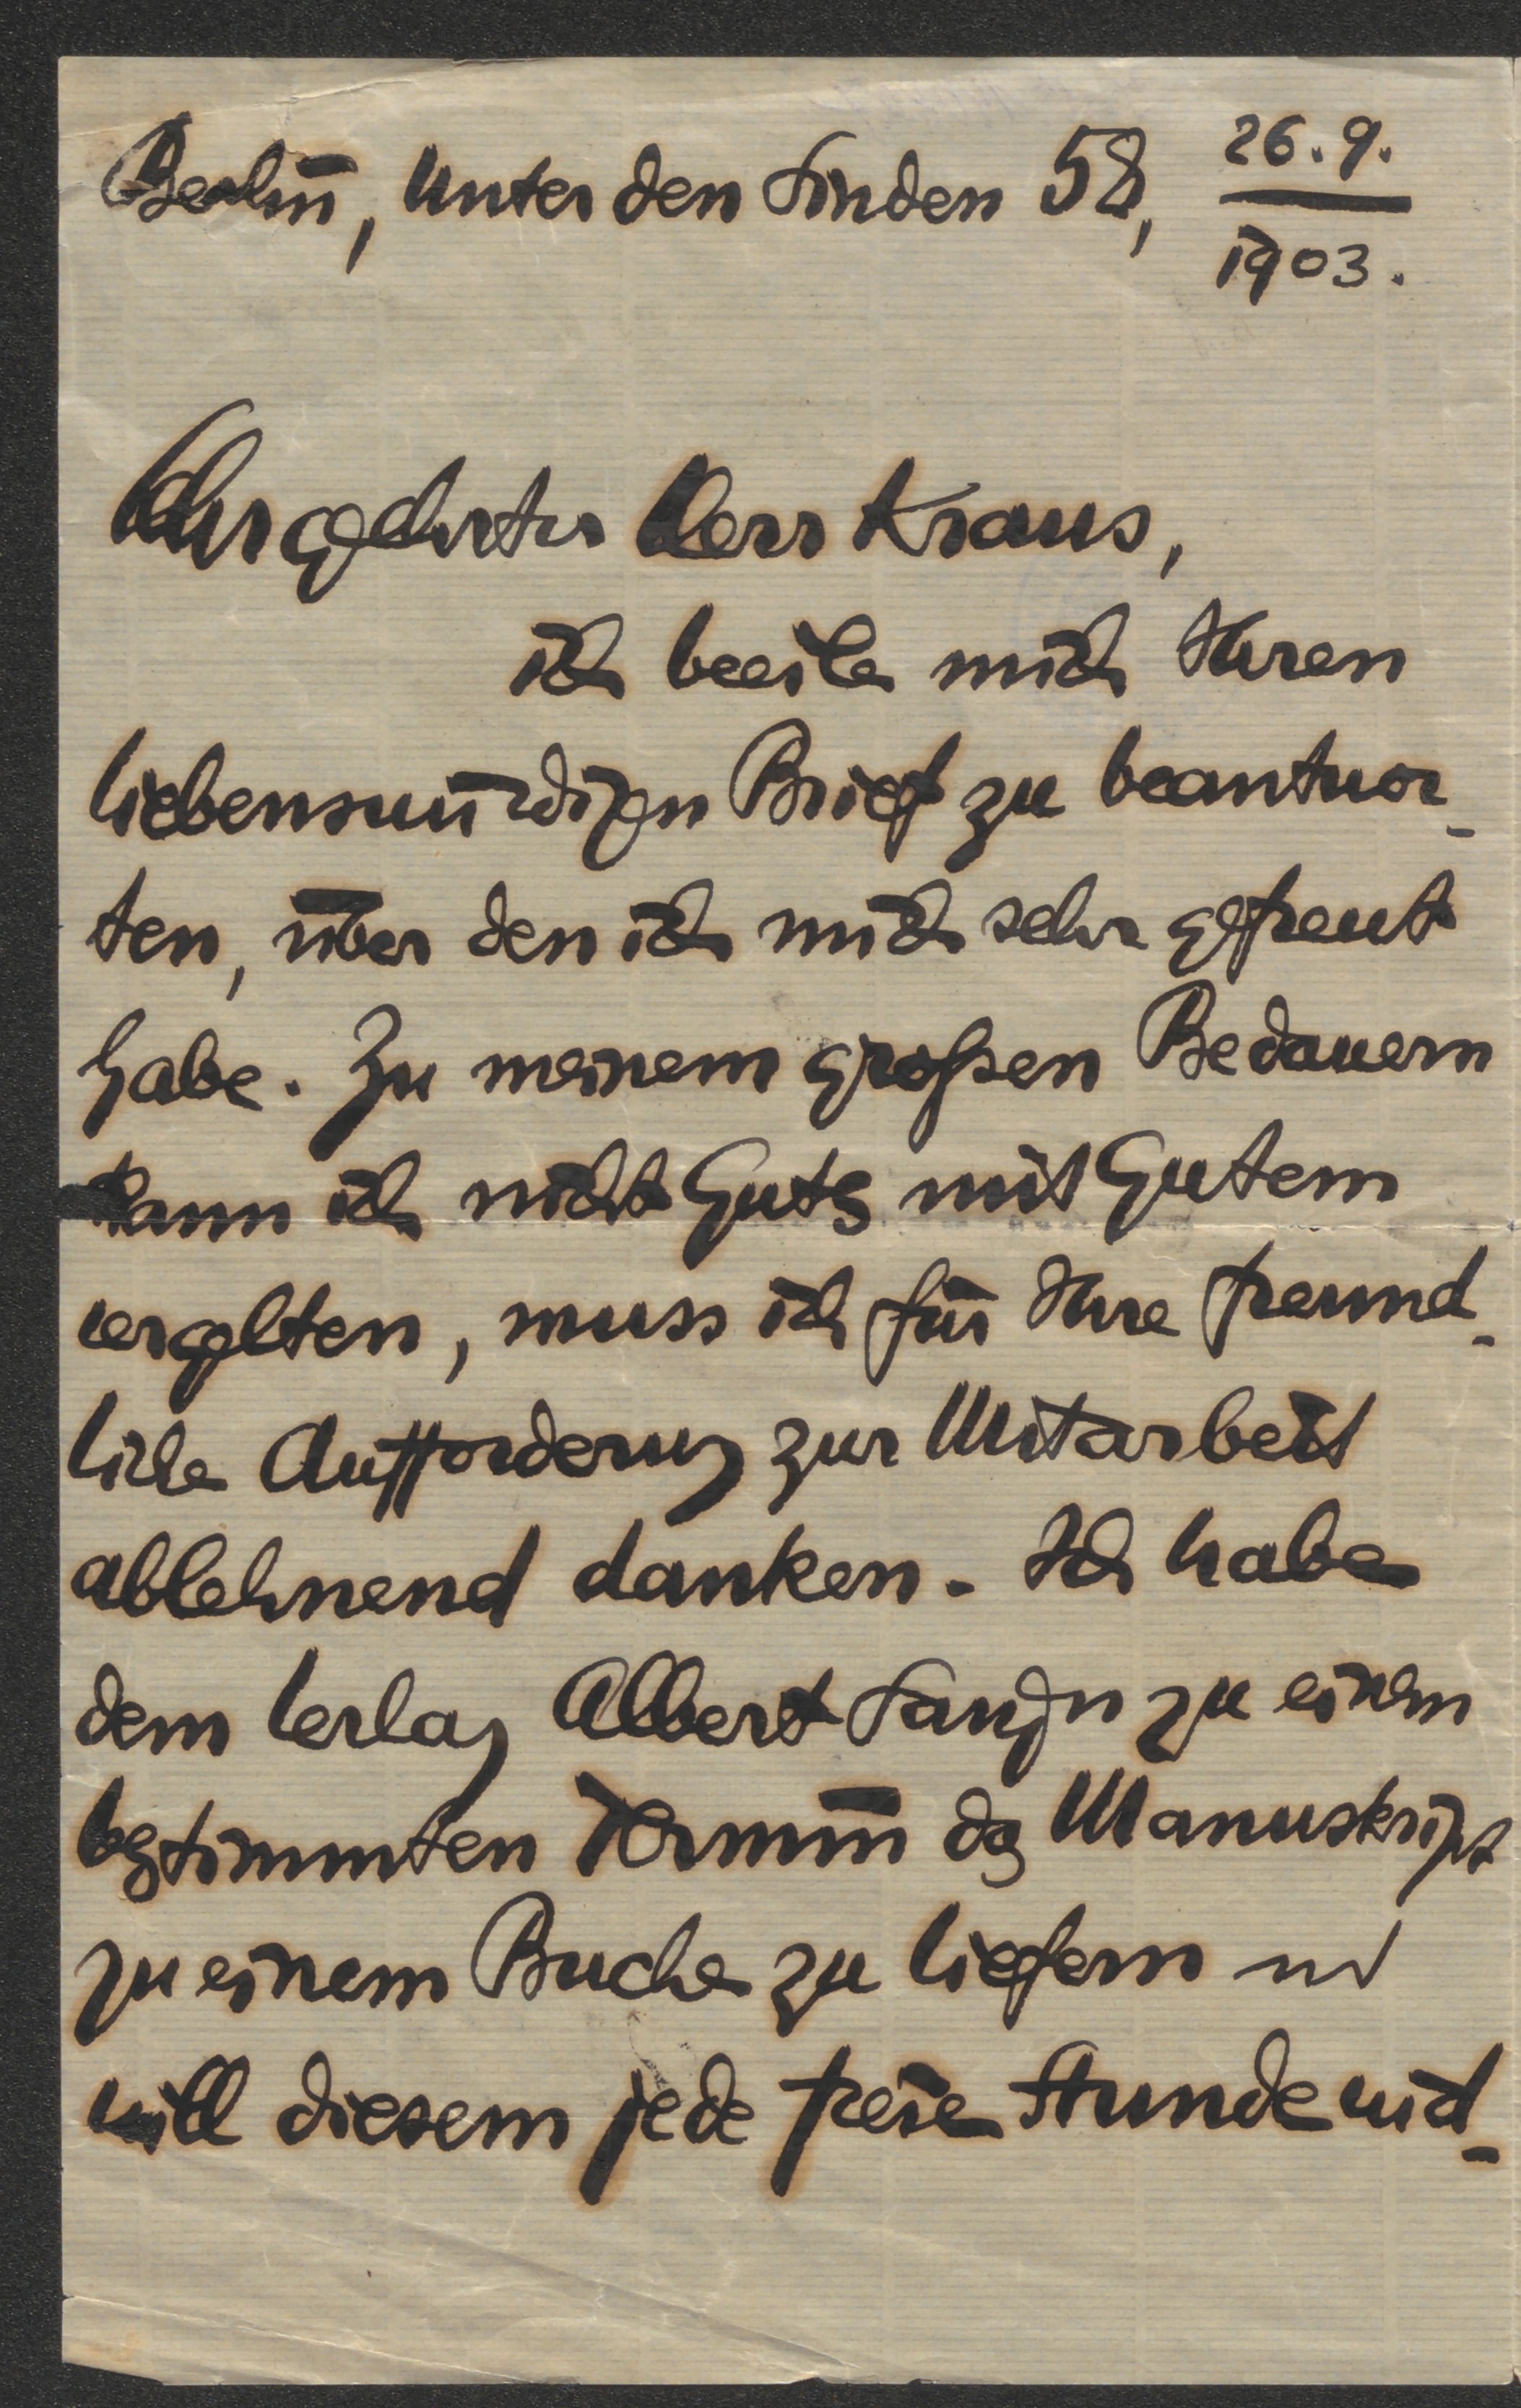 Berlin, Unter den Linden 58, 26.9.
1903.
Sehr geehrter Herr Kraus,
ich beeile mich Ihren
liebenswürdigen Brief zu beantwor-
ten, über den ich mich sehr gefreut
habe. Zu meinem großen Bedauern
kann ich nicht Gutes mit Gutem
vergelten, muss ich für Ihre freund-
liche Aufforderung zur Mitarbeit
ablehnend danken. Ich habe
dem Verlag Albert Langen zu einem
bestimmten Termin das Manuskript
zu einem Buche zu liefern und
will diesem jede freie Stunde wid-